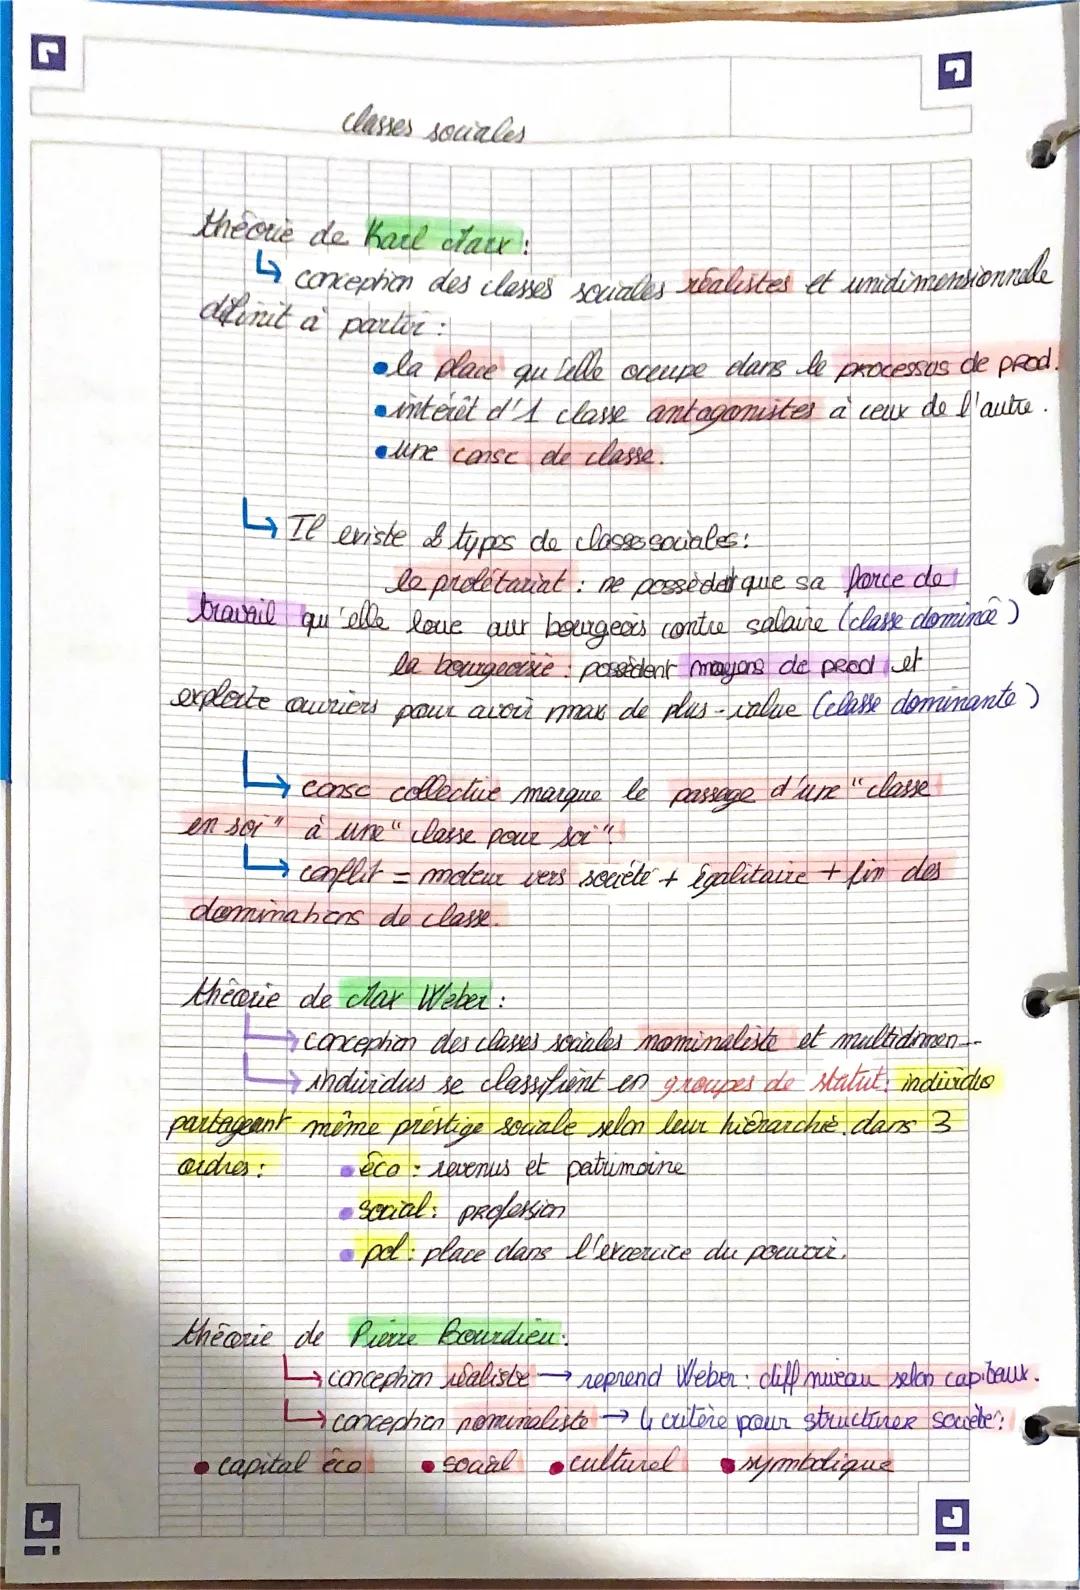 classes sociales
théorie de Karl Marx :
↳ conception des classes sociales réalistes et unidimensionnelle
définit à partir :
• la place qu'elle occupe dans le processus de prod.
• intérêt d'1 classe antagonistes à ceux de l'autre.
• une consc de classe.
↳ Il existe 2 types de classes sociales :
le prolétariat : ne possèdent que sa force de
travail qu'elle loue aux bourgeois contre salaire (classe dominée)
la bourgeoisie : possèdent moyens de prod et
exploite ouvriers pour avoir max de plus-value (classe dominante)
↳ consc collective marque le passage d'une "classe
en soi" à une "classe pour soi".
↳ conflit = moteur vers société + égalitaire + fin des
dominations de classe.
théorie de Max Weber :
↳ conception des classes sociales nominaliste et multidimen...
↳ individus se classifient en groupes de statut : individio
partageant même préstige sociale selon leur hiérarchie. dans 3
ordres : • éco : revenus et patrimoine
• social : profession
• pol : place dans l'excercice du pouvoir.
théorie de Pierre Bourdieu :
↳ conception réaliste → reprend Weber : diff niveau selon capitaux.
↳ conception nominaliste → 4 critère pour structurer société :
• capital éco • social • culturel • symbolique